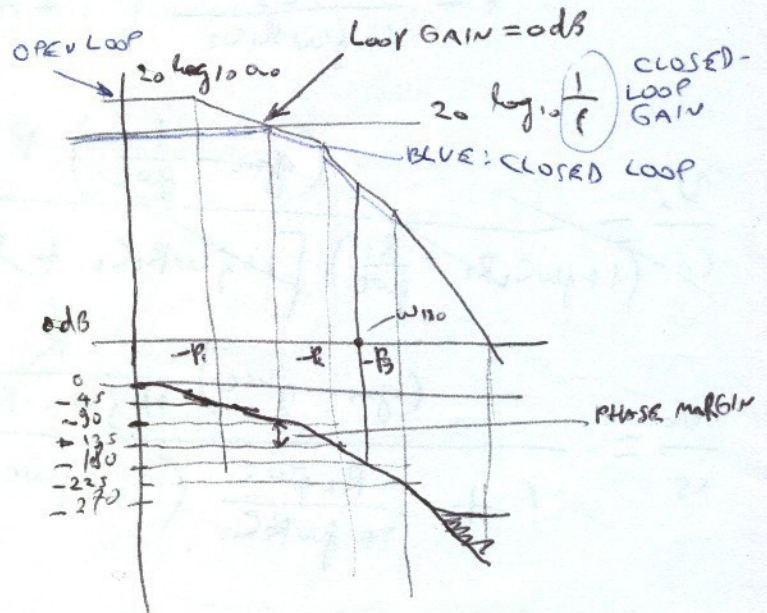 OPEN LOOP
LOOP GAIN = 0dB
20 log10 a0
20 log10 1/f
CLOSED-
LOOP
GAIN
BLUE: CLOSED LOOP
0dB
-P1
-P2
-P3
ω180
0
-45
-90
-135
-180
-225
-270
PHASE MARGIN